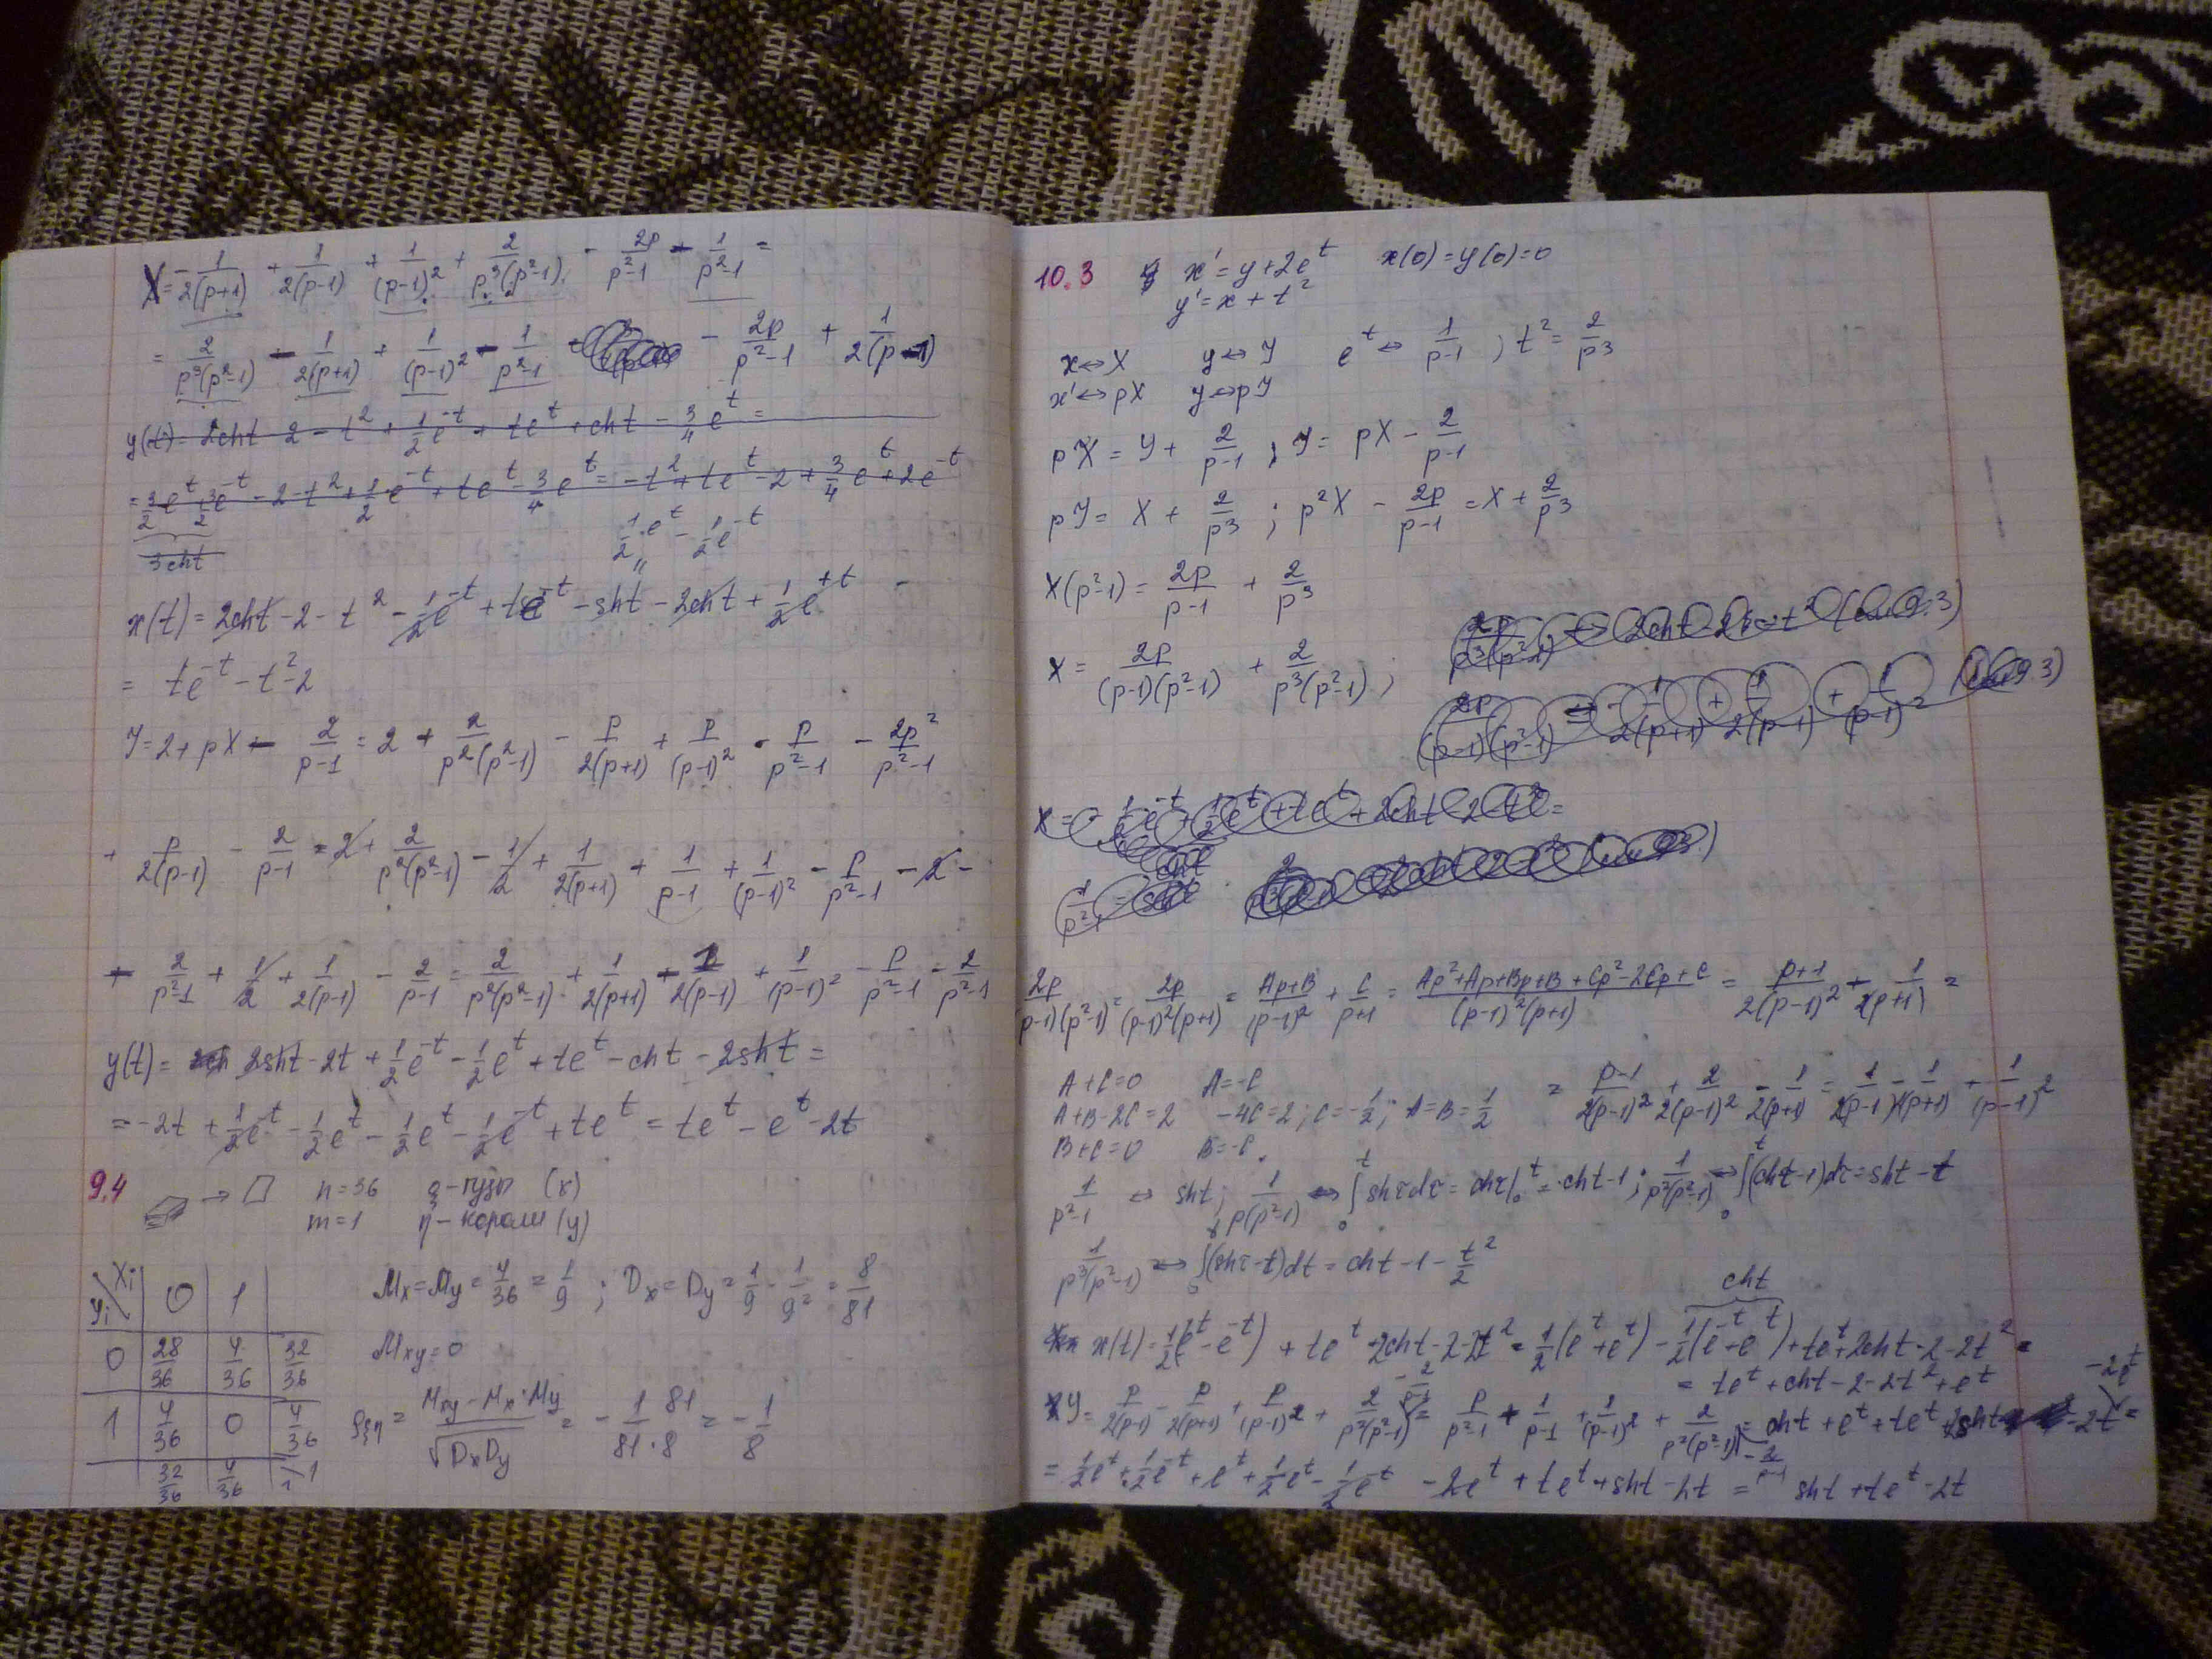 X = -1/(2(p+1)) + 1/(2(p-1)) + 1/(p-1)² + 2/(p³(p²-1)) - 2p/(p²-1) - 1/(p²-1) =
= 2/(p³(p²-1)) - 1/(2(p+1)) + 1/(p-1)² - 1/(p²-1) - 2p/(p²-1) + 1/(2(p-1))
y(t) = 2cht - 2 - t² + 1/2 e^-t + te^t + cht - 3/4 e^t =
= 3/2 e^t + 3/2 e^-t - 2 - t² + 1/2 e^-t + te^t - 3/4 e^t = -t² + te^t - 2 + 3/4 e^t + 2e^-t
3cht
1/2 e^t - 1/2 e^-t
x(t) = 2cht - 2 - t² - 1/2 e^-t + te^-t - sht - 2cht + 1/2 e^+t
= te^-t - t² - 2
Y = 2 + pX - 2/(p-1) = 2 + 2/(p²(p²-1)) - p/(2(p+1)) + p/(p-1)² - p/(p²-1) - 2p²/(p²-1)
+ p/(2(p-1)) - 2/(p-1) = 2 + 2/(p²(p²-1)) - 1/2 + 1/(2(p+1)) + 1/(p-1) + 1/(p-1)² - p/(p²-1) - 2 -
- 2/(p²-1) + 1/2 + 1/(2(p-1)) - 2/(p-1) = 2/(p²(p²-1)) + 1/(2(p+1)) - 1/(2(p-1)) + 1/(p-1)² - p/(p²-1) - 2/(p²-1)
y(t) = 2sht - 2t + 1/2 e^-t - 1/2 e^t + te^t - cht - 2sht =
= -2t + 1/2 e^-t - 1/2 e^t - 1/2 e^t - 1/2 e^-t + te^t = te^t - e^t - 2t
9.4 → n=36 ξ - тузы (x)
m=1 η - короли (y)
yi \ xi 0 1
0 28/36 4/36 32/36
1 4/36 0 4/36
32/36 4/36 1
Mx = My = 4/36 = 1/9 ; Dx = Dy = 1/9 - 1/9² = 8/81
Mxy = 0
ρξη = (Mxy - Mx·My)/√(DxDy) = - (1·81)/(81·8) = - 1/8
10.3 x' = y + 2e^t x(0) = y(0) = 0
y' = x + t²
x ↔ X y ↔ Y e^t ↔ 1/(p-1) ; t² = 2/p³
x' ↔ pX y ↔ pY
pX = Y + 2/(p-1) ; Y = pX - 2/(p-1)
pY = X + 2/p³ ; p²X - 2p/(p-1) = X + 2/p³
X(p²-1) = 2p/(p-1) + 2/p³
X = 2p/((p-1)(p²-1)) + 2/(p³(p²-1)) ;
2p/((p-1)(p²-1)) = 2p/((p-1)²(p+1)) = (Ap+B)/(p-1)² + C/(p+1) = (Ap²+Ap+Bp+B+Cp²-2Cp+C)/((p-1)²(p+1)) = (p+1)/(2(p-1)²) - 1/(2(p+1)) =
A+C=0 A=-C
A+B-2C=2 -4C=2 ; C=-1/2 ; A=B=1/2
B+C=0 B=-C
= (p-1)/(2(p-1)²) + 2/(2(p-1)²) - 1/(2(p+1)) = 1/(2(p-1)) - 1/(2(p+1)) + 1/(p-1)²
1/(p²-1) ↔ sht ; 1/(p(p²-1)) ↔ ∫₀ᵗ shτdτ = chτ|₀ᵗ = cht - 1 ; 1/(p²(p²-1)) ↔ ∫₀ᵗ (cht-1)dτ = sht - t
1/(p³(p²-1)) ↔ ∫₀ (shτ-t)dt = cht - 1 - t²/2
cht
x(t) = 1/2(e^t - e^-t) + te^t + 2cht - 2 - 2t² = 1/2(e^t + e^t) - 1/2(e^-t + e^t) + te^t + 2cht - 2 - 2t² =
= te^t + cht - 2 - 2t² + e^t
Y = p/(2(p-1)) - p/(2(p+1)) + p/(p-1)² + 2/(p²(p²-1)) - 2/(p-1) = p/(p²-1) + 1/(p-1) + 1/(p-1)² + 2/(p²(p²-1)) - 2/(p-1) = cht + e^t + te^t + 2sht - 2t - 2e^t =
= 1/2 e^t + 1/2 e^-t + e^t + 1/2 e^t - 1/2 e^-t - 2e^t + te^t + sht - 2t = sht + te^t - 2t